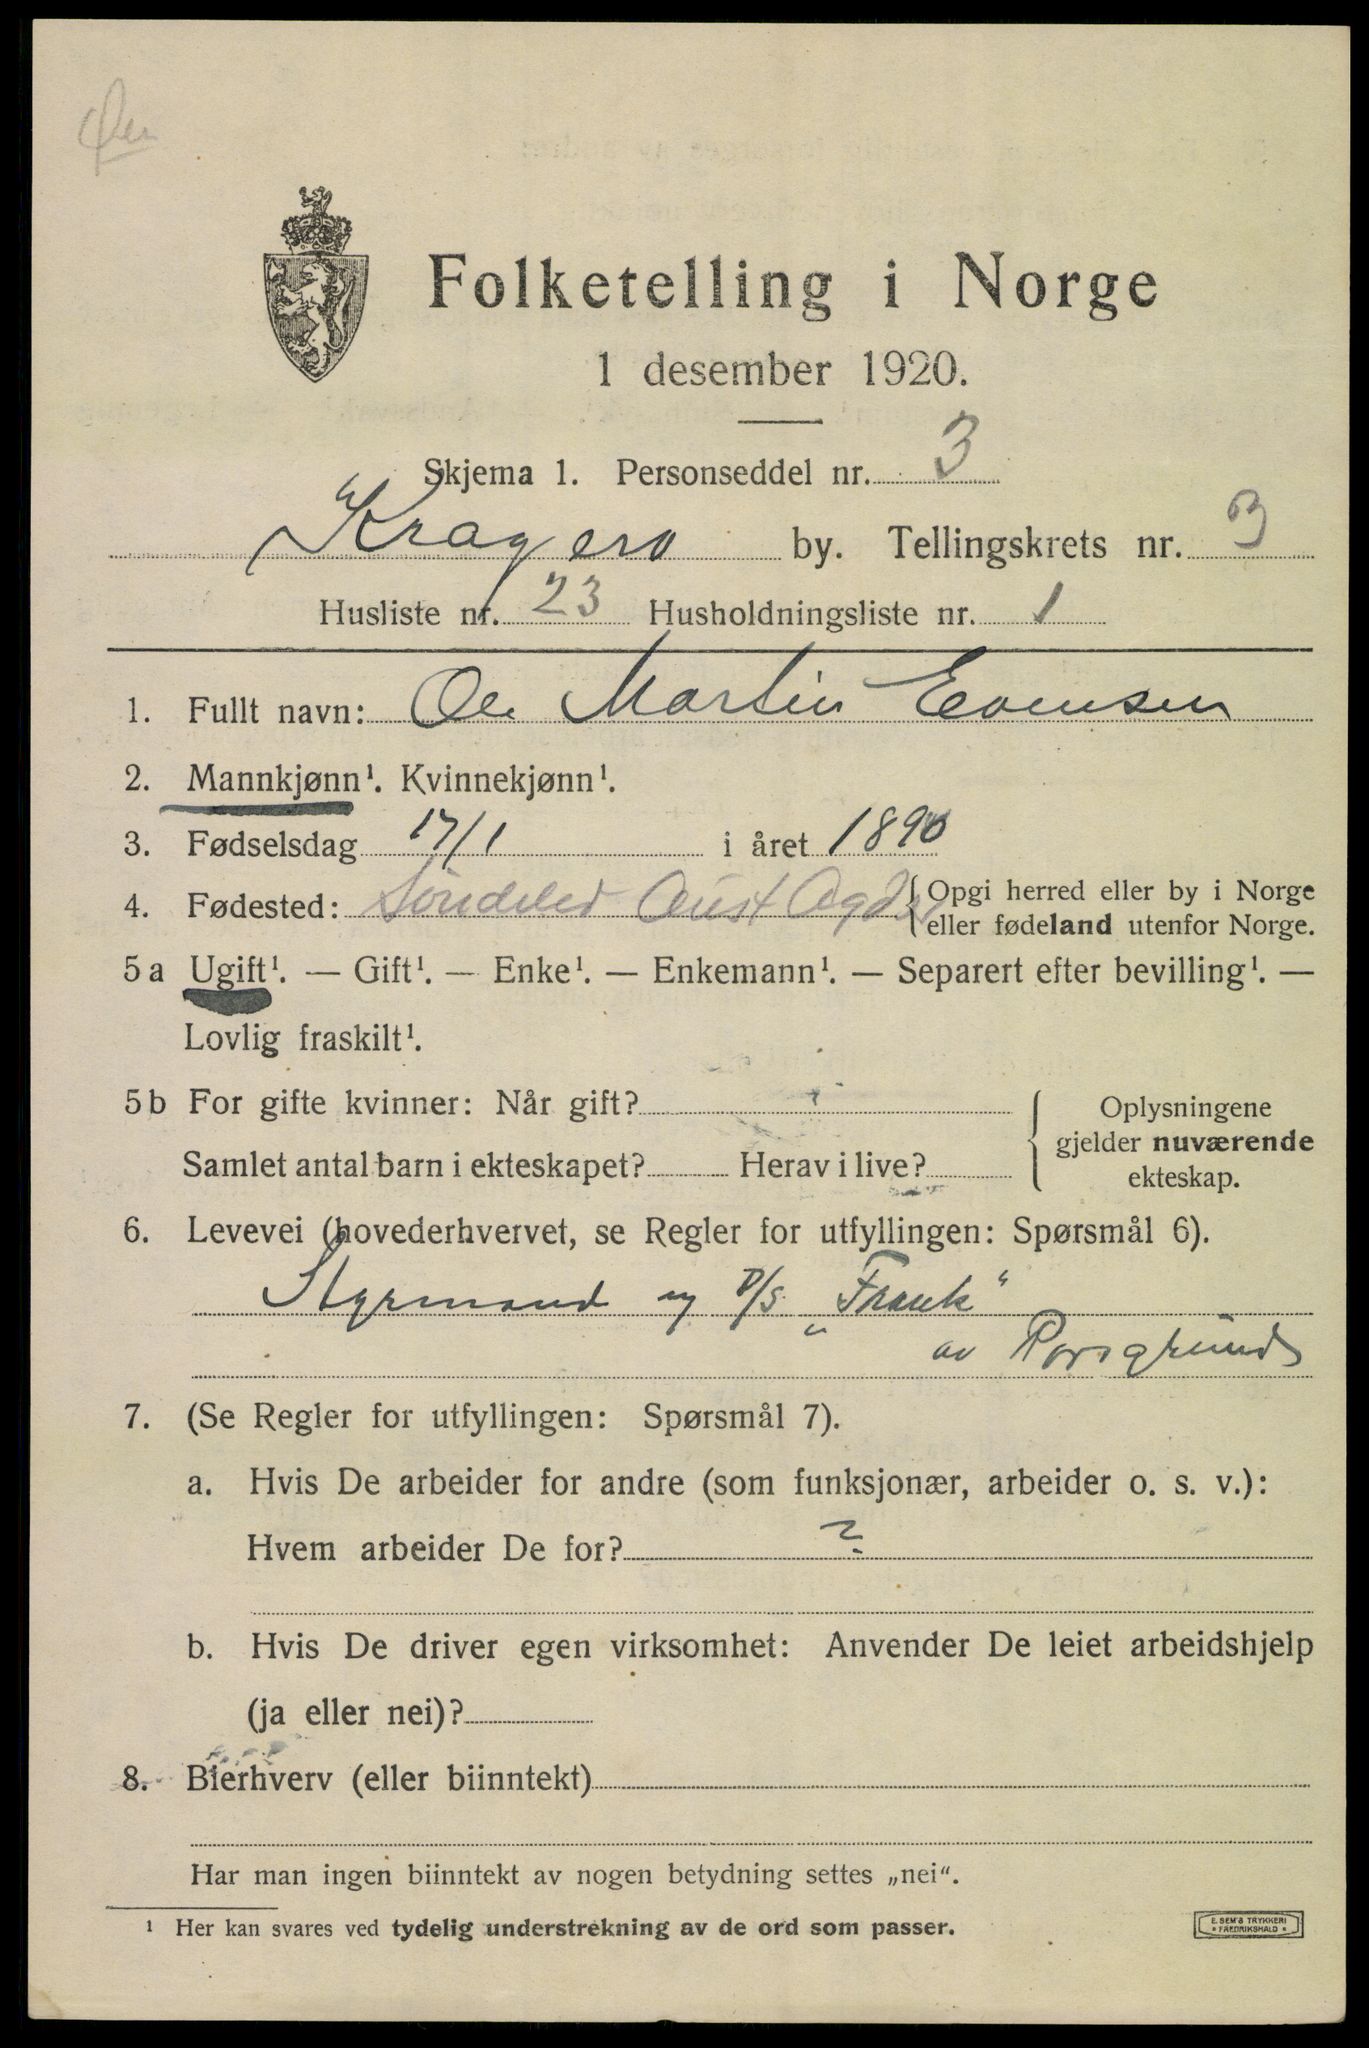 Øen
Folketelling i Norge
1 desember 1920.
Skjema 1. Personseddel nr. 3
Kragerø by. Tellingskrets nr. 3
Husliste nr. 23 Husholdningsliste nr. 1
1. Fullt navn: Ole Martin Evensen
2. Mannkjønn¹. Kvinnekjønn¹.
3. Fødselsdag 17/1 i året 1890
4. Fødested: Søndeled Aust Agder { Opgi herred eller by i Norge
eller fødeland utenfor Norge.
5a Ugift¹. — Gift¹. — Enke¹. — Enkemann¹. — Separert efter bevilling¹. —
Lovlig fraskilt¹.
5b For gifte kvinner: Når gift?
Samlet antal barn i ekteskapet? Herav i live?
Oplysningene
gjelder nuværende
ekteskap.
6. Levevei (hovederhvervet, se Regler for utfyllingen: Spørsmål 6).
Styrmand D/S „Frank“
av Porsgrund
7. (Se Regler for utfyllingen: Spørsmål 7).
a. Hvis De arbeider for andre (som funksjonær, arbeider o. s. v.):
Hvem arbeider De for? ?
b. Hvis De driver egen virksomhet: Anvender De leiet arbeidshjelp
(ja eller nei)?
8. Bierhverv (eller biinntekt)
Har man ingen biinntekt av nogen betydning settes „nei“.
¹ Her kan svares ved tydelig understrekning av de ord som passer.
E. SEM'S TRYKKERI
• FREDRIKSHALD •